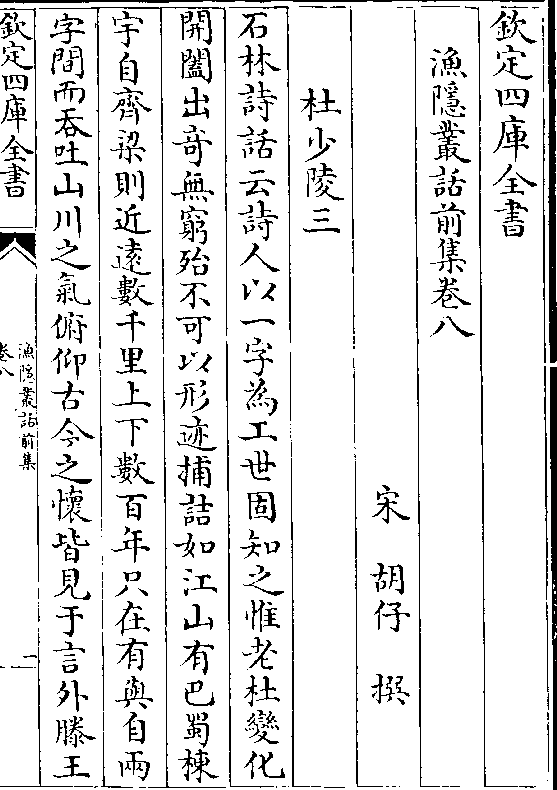 欽定四庫全書
漁隱叢話前集卷八
宋 胡仔 撰
杜少陵三
石林詩話云詩人以一字為工世固知之惟老杜變化
開闔出竒無窮殆不可以形迹捕詰如江山有巴蜀棟
宇自齊梁則近遠數千里上下數百年只在有與自兩
字間而吞吐山川之氣俯仰古今之懷皆見于言外滕王
欽定四庫全書
漁隱叢話前集
卷八
一